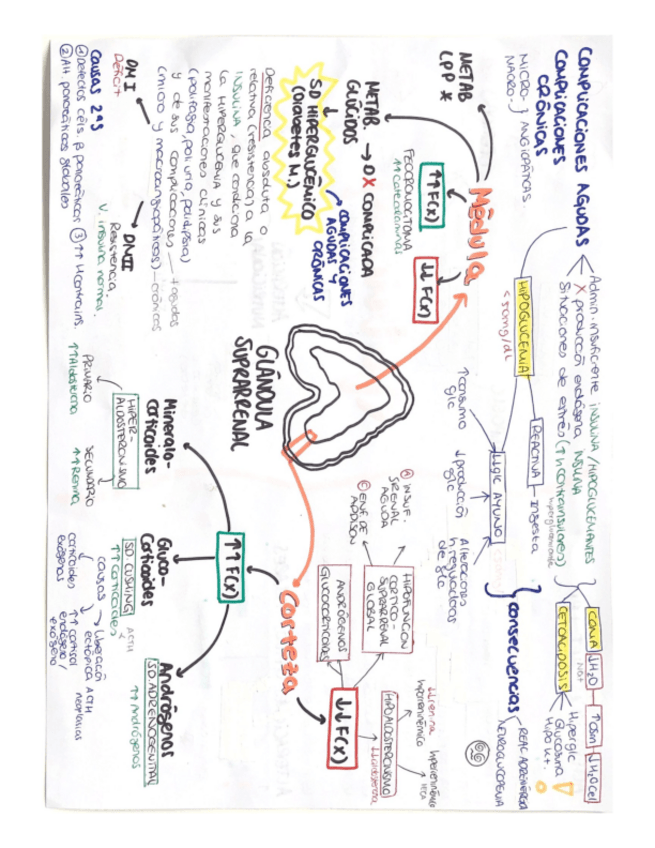 COMPLICACIONES AGUDAS
COMPLICACIONES
CRÓNICAS
MICRO-} ANGIOPÁTICAS
MACRO-
Admin. insuficiente INSULINA / HIPOGLUCEMIANTES
X producción endógena INSULINA
Situaciones de estrés (↑ h contrainsulares)
COMA
↓H2O
↑OSM
↓H2O cel
CETOACIDOSIS
Hiperglic
Glucosuria
Hipo K+
HIPOGLUCEMIA
<50mg/dl
REACTIVA
Ingesta
↓glc AYUNO
↑consumo
glc
↓producción
glc
Alteraciones
h reguladoras
de glc
consecuencias
REAC ADRENÉRGICA
NEUROGLUCOPENIA
Médula
METAB
LPP *
METAB.
GLÚCIDOS
→ DX COMPLICADA
↑↑ F(x)
FEOCROMOCITOMA
↑↑ catecolaminas
↓↓ F(x)
SD HIPERGLUCÉMICO
(Diabetes M.)
COMPLICACIONES
AGUDAS Y
CRÓNICAS
Deficiencia absoluta o
relativa (resistencia) a la
INSULINA, que condiciona
la HIPERGLUCEMIA y sus
manifestaciones clínicas
(polifagia, poliuria, polidipsia)
y de sus complicaciones — agudas
(micro y macroangiopáticas) — crónicas
DM I
Déficit
DMII
Resistencia.
V. insulina normal.
Causas 2ªs
① Defectos céls. β pancreáticas ③ ↑↑ H contrains.
② Alt. pancreáticas globales
GLÁNDULA
SUPRARRENAL
Corteza
↑↑ F(x)
Mineralo-
corticoides
HIPER-
ALDOSTERONISMO
PRIMARIO
↑↑ Aldosterona
SECUNDARIO
↑↑ Renina
Gluco-
Corticoides
SD CUSHING
↑↑ CORTICOIDES
ACTH
causas
corticoides
exógenos
Liberación
ectópica ACTH
neoplásicas
↑↑ cortisol
endógeno/
exógeno
Andrógenos
SD ADRENOGENITAL
↑↑ Andrógenos
↓↓ F(x)
HIPOFUNCIÓN
CORTICO-
SUPRARRENAL
GLOBAL
Ⓐ INSUF.
SRENAL
AGUDA
Ⓒ ENF. DE
ADDISON
ANDRÓGENOS
GLUCOCORTICOIDES
HIPOALDOSTERONISMO
↓↓ aldosterona
↓↓ renina
hiporreninémico
hiperreninémico